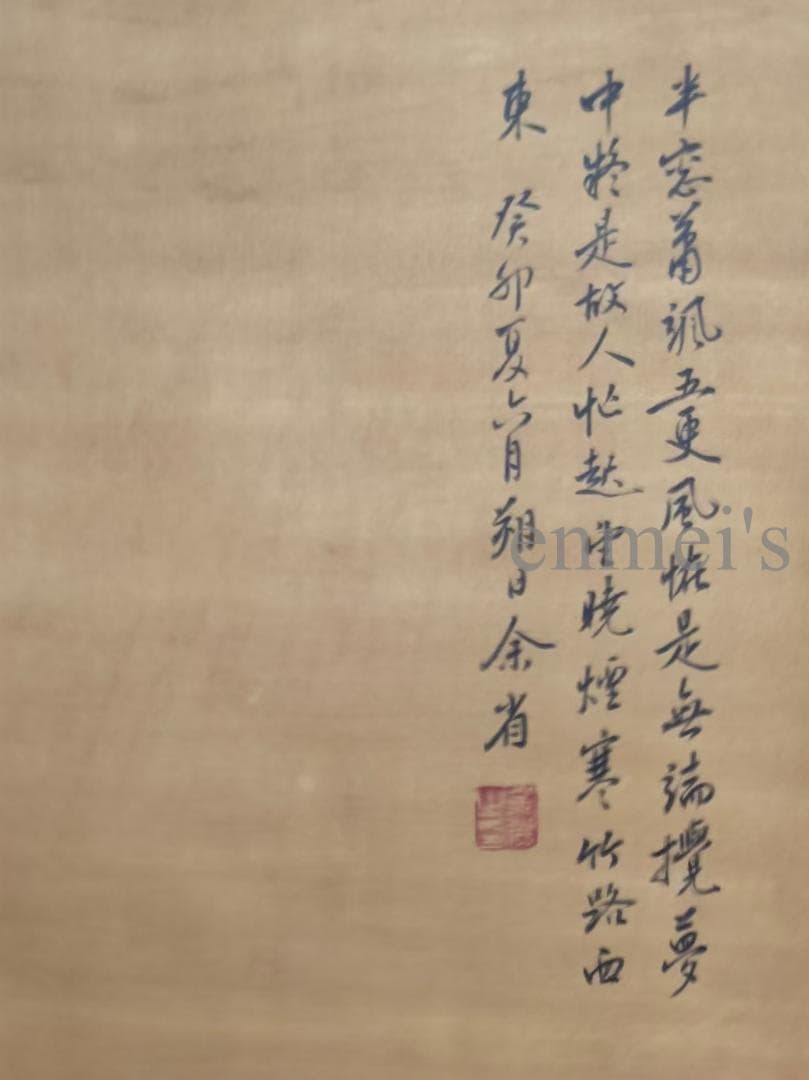 半窓蕭颯五更風恠是無端攪夢
中疑是故人忙起望曉煙寒竹路西
東 癸卯夏六月朔日余省
enmei's